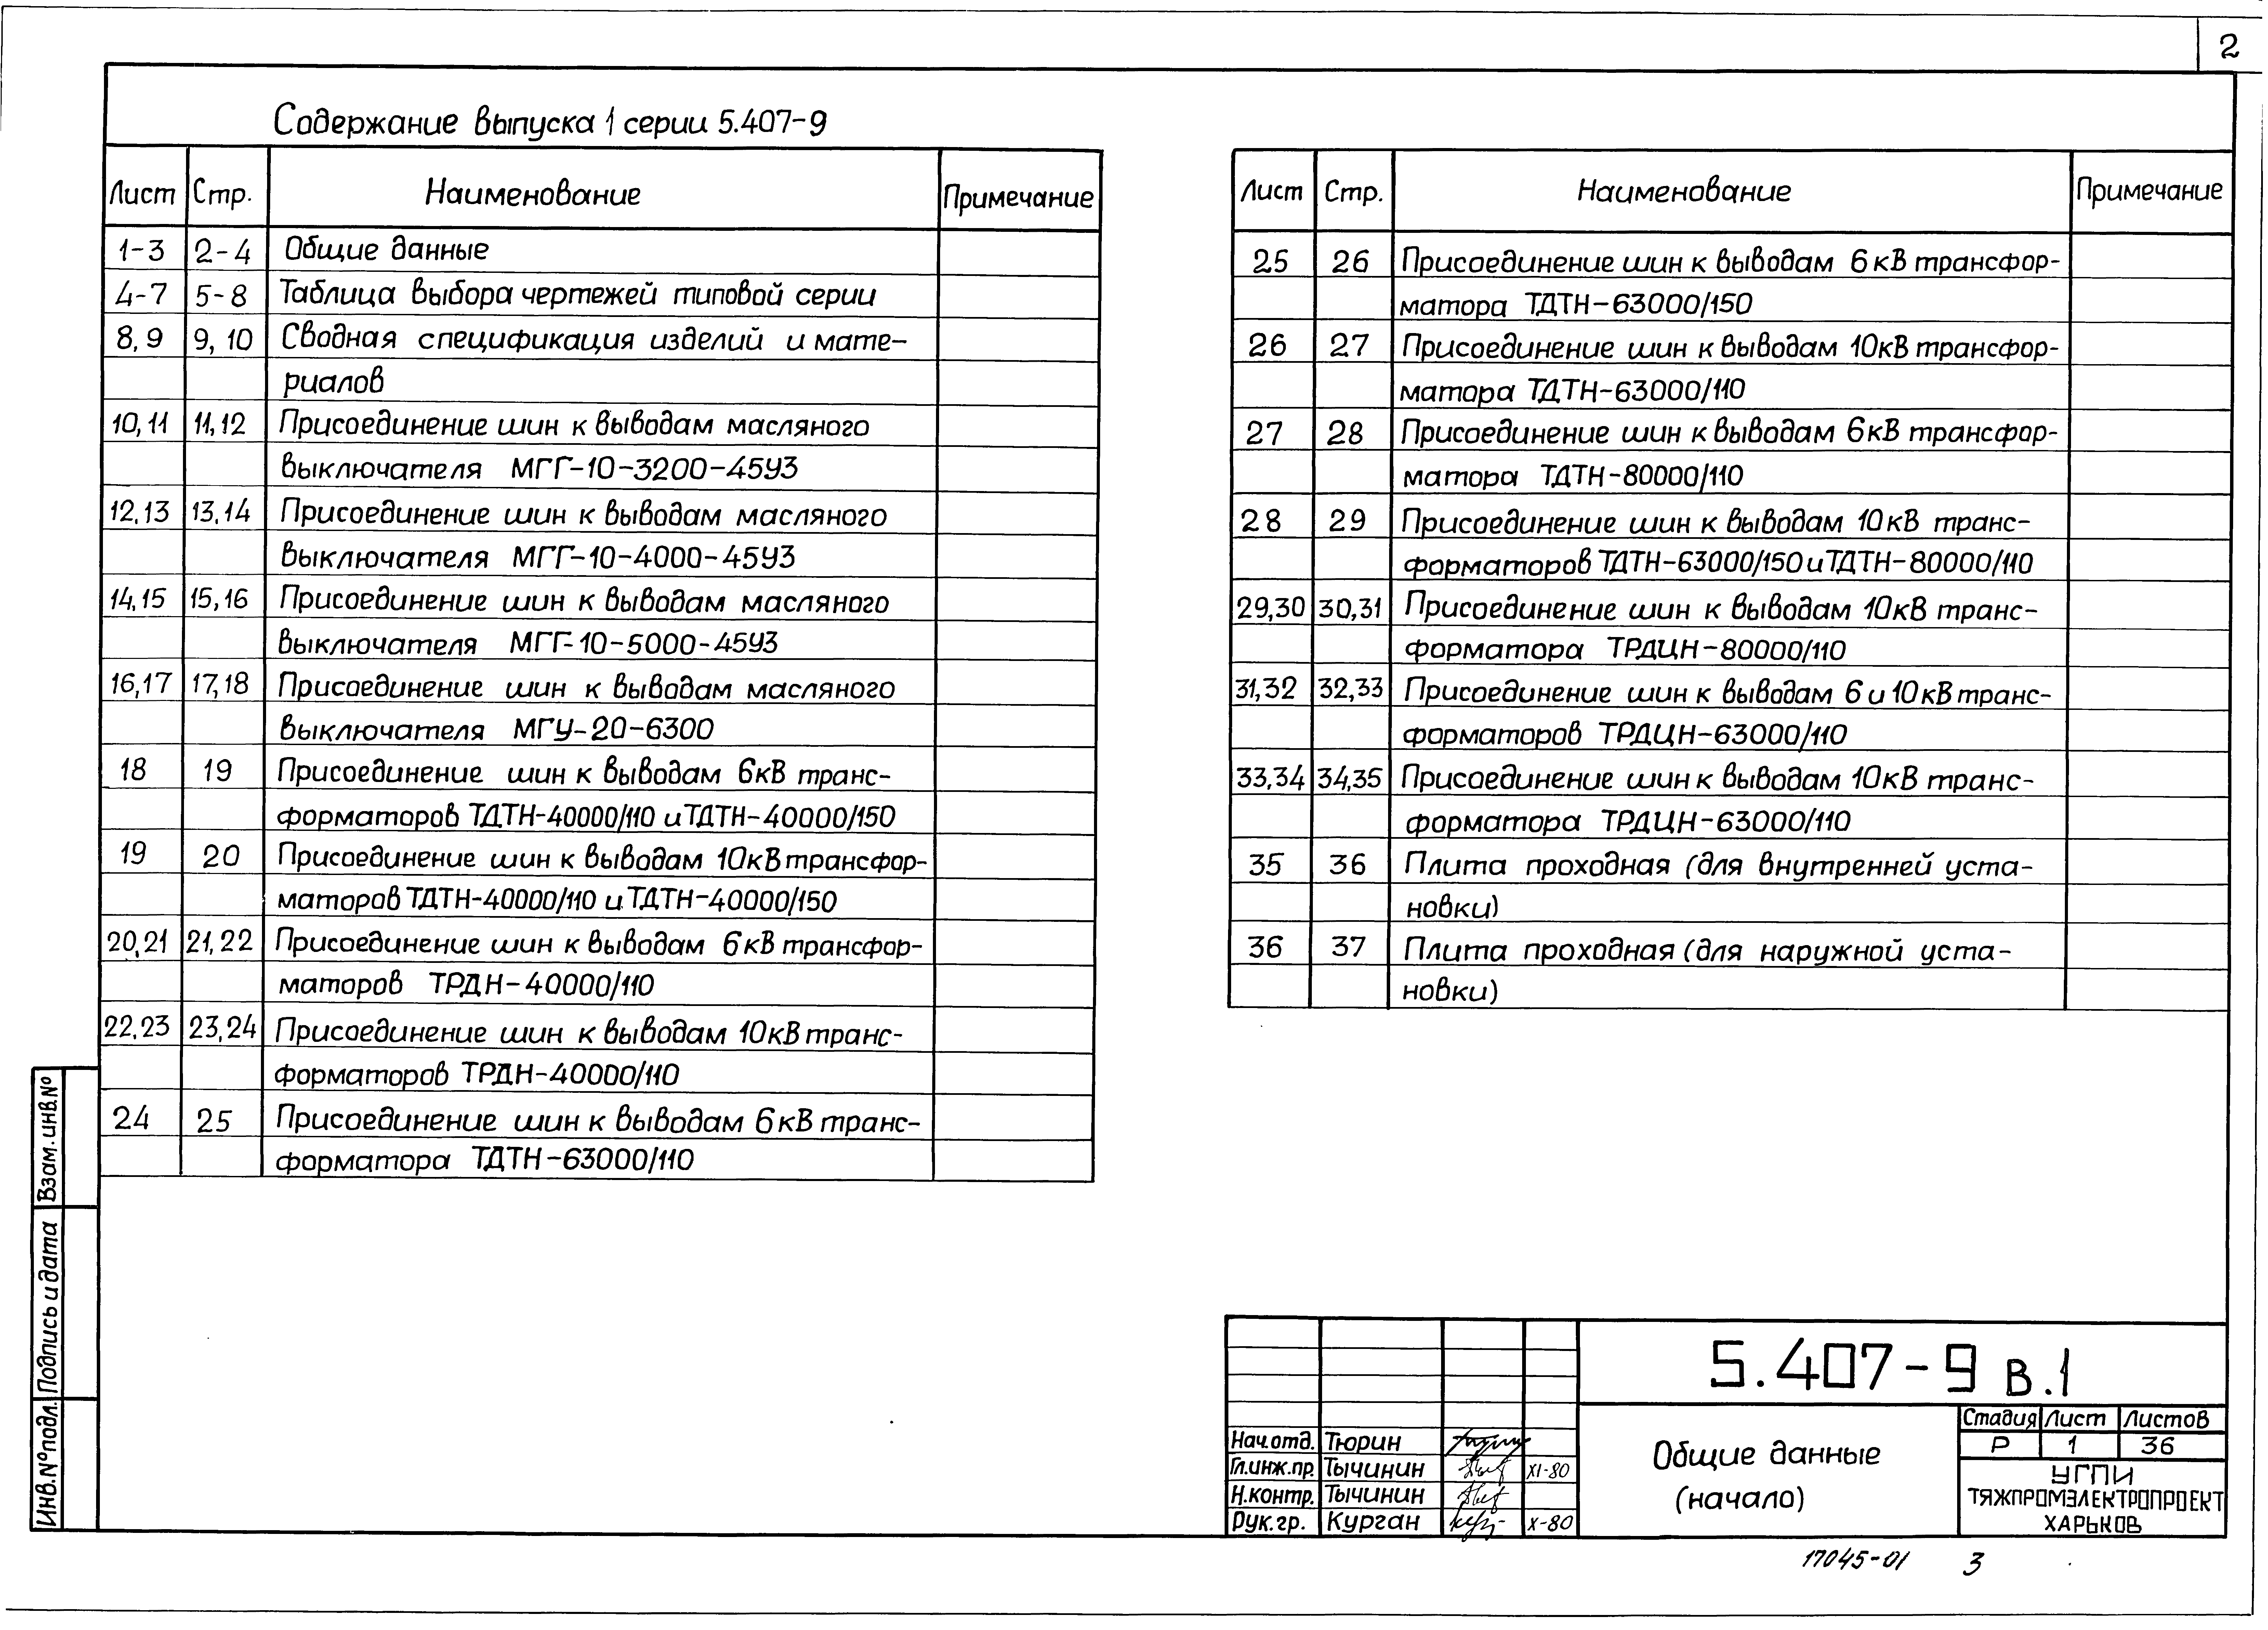 2
Содержание выпуска 1 серии 5.407-9
Лист Стр. Наименование Примечание
1-3 2-4 Общие данные
4-7 5-8 Таблица выбора чертежей типовой серии
8,9 9,10 Сводная спецификация изделий и мате-
риалов
10,11 11,12 Присоединение шин к выводам масляного
выключателя МГГ-10-3200-45У3
12,13 13,14 Присоединение шин к выводам масляного
выключателя МГГ-10-4000-45У3
14,15 15,16 Присоединение шин к выводам масляного
выключателя МГГ-10-5000-45У3
16,17 17,18 Присоединение шин к выводам масляного
выключателя МГУ-20-6300
18 19 Присоединение шин к выводам 6кВ транс-
форматоров ТДТН-40000/110 и ТДТН-40000/150
19 20 Присоединение шин к выводам 10кВ трансфор-
маторов ТДТН-40000/110 и ТДТН-40000/150
20,21 21,22 Присоединение шин к выводам 6кВ трансфор-
маторов ТРДН-40000/110
22,23 23,24 Присоединение шин к выводам 10кВ транс-
форматоров ТРДН-40000/110
24 25 Присоединение шин к выводам 6кВ транс-
форматора ТДТН-63000/110
Лист Стр. Наименование Примечание
25 26 Присоединение шин к выводам 6кВ трансфор-
матора ТДТН-63000/150
26 27 Присоединение шин к выводам 10кВ трансфор-
матора ТДТН-63000/110
27 28 Присоединение шин к выводам 6кВ трансфор-
матора ТДТН-80000/110
28 29 Присоединение шин к выводам 10кВ транс-
форматоров ТДТН-63000/150 и ТДТН-80000/110
29,30 30,31 Присоединение шин к выводам 10кВ транс-
форматора ТРДЦН-80000/110
31,32 32,33 Присоединение шин к выводам 6 и 10кВ транс-
форматоров ТРДЦН-63000/110
33,34 34,35 Присоединение шин к выводам 10кВ транс-
форматора ТРДЦН-63000/110
35 36 Плита проходная (для внутренней уста-
новки)
36 37 Плита проходная (для наружной уста-
новки)
Взам. инв.№
Подпись и дата
Инв.№подл.
5.407-9 в.1
Нач.отд. Тюрин
Гл.инж.пр. Тычинин XI-80
Н.контр. Тычинин
Рук.гр. Курган X-80
Общие данные
(начало)
Стадия Лист Листов
Р 1 36
УГПИ
ТЯЖПРОМЭЛЕКТРОПРОЕКТ
ХАРЬКОВ
17045-01 3